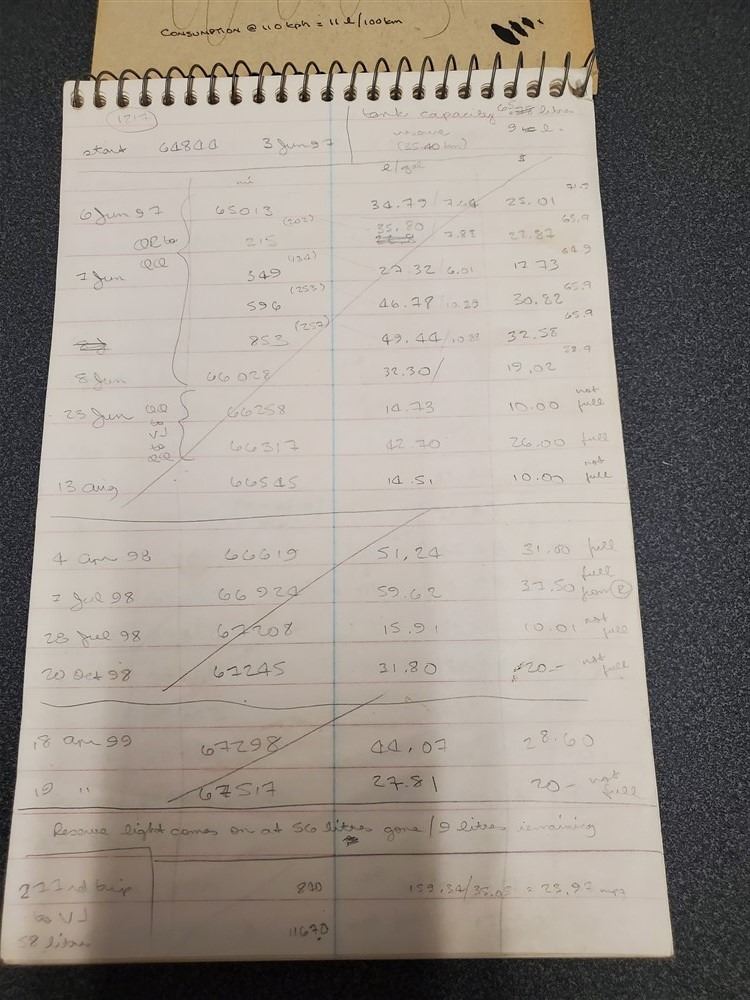 CONSUMPTION @ 110 kph = 11 l/100km
(1217)
tank capacity 65 litres
start 64844 3 Jun 97
(35.40 km) 9 l.
mi l/gal $
71.9
6 Jun 97 65013 34.79 / 7.64 25.01
(202) 65.9
QR to 215 35.80 7.83 23.82
(134) 64.9
7 Jun QQ 349 27.32 / 6.01 17.73
(253) 65.9
596 46.78 / 10.29 30.82
(257) 65.9
853 49.44 / 10.88 32.58
58.9
8 Jun 66028 32.30 / 19.02
23 Jun QQ 66258 14.73 10.00 not full
to
VJ 66317 42.70 26.00 full
to
QQ
13 aug 66545 14.51 10.00 not full
4 apr 98 66619 51.24 31.00 full
7 Jul 98 66924 59.62 37.50 full from R
28 Jul 98 67208 15.91 10.01 not full
20 Oct 98 67245 31.80 $20.- not full
18 apr 99 67298 44.07 28.60
19 " 67517 27.81 20- not full
Reserve light comes on at 56 litres gone / 9 litres remaining
trip 159.34/35.05 = 23.92 mpg
to VJ
58 litres 11670